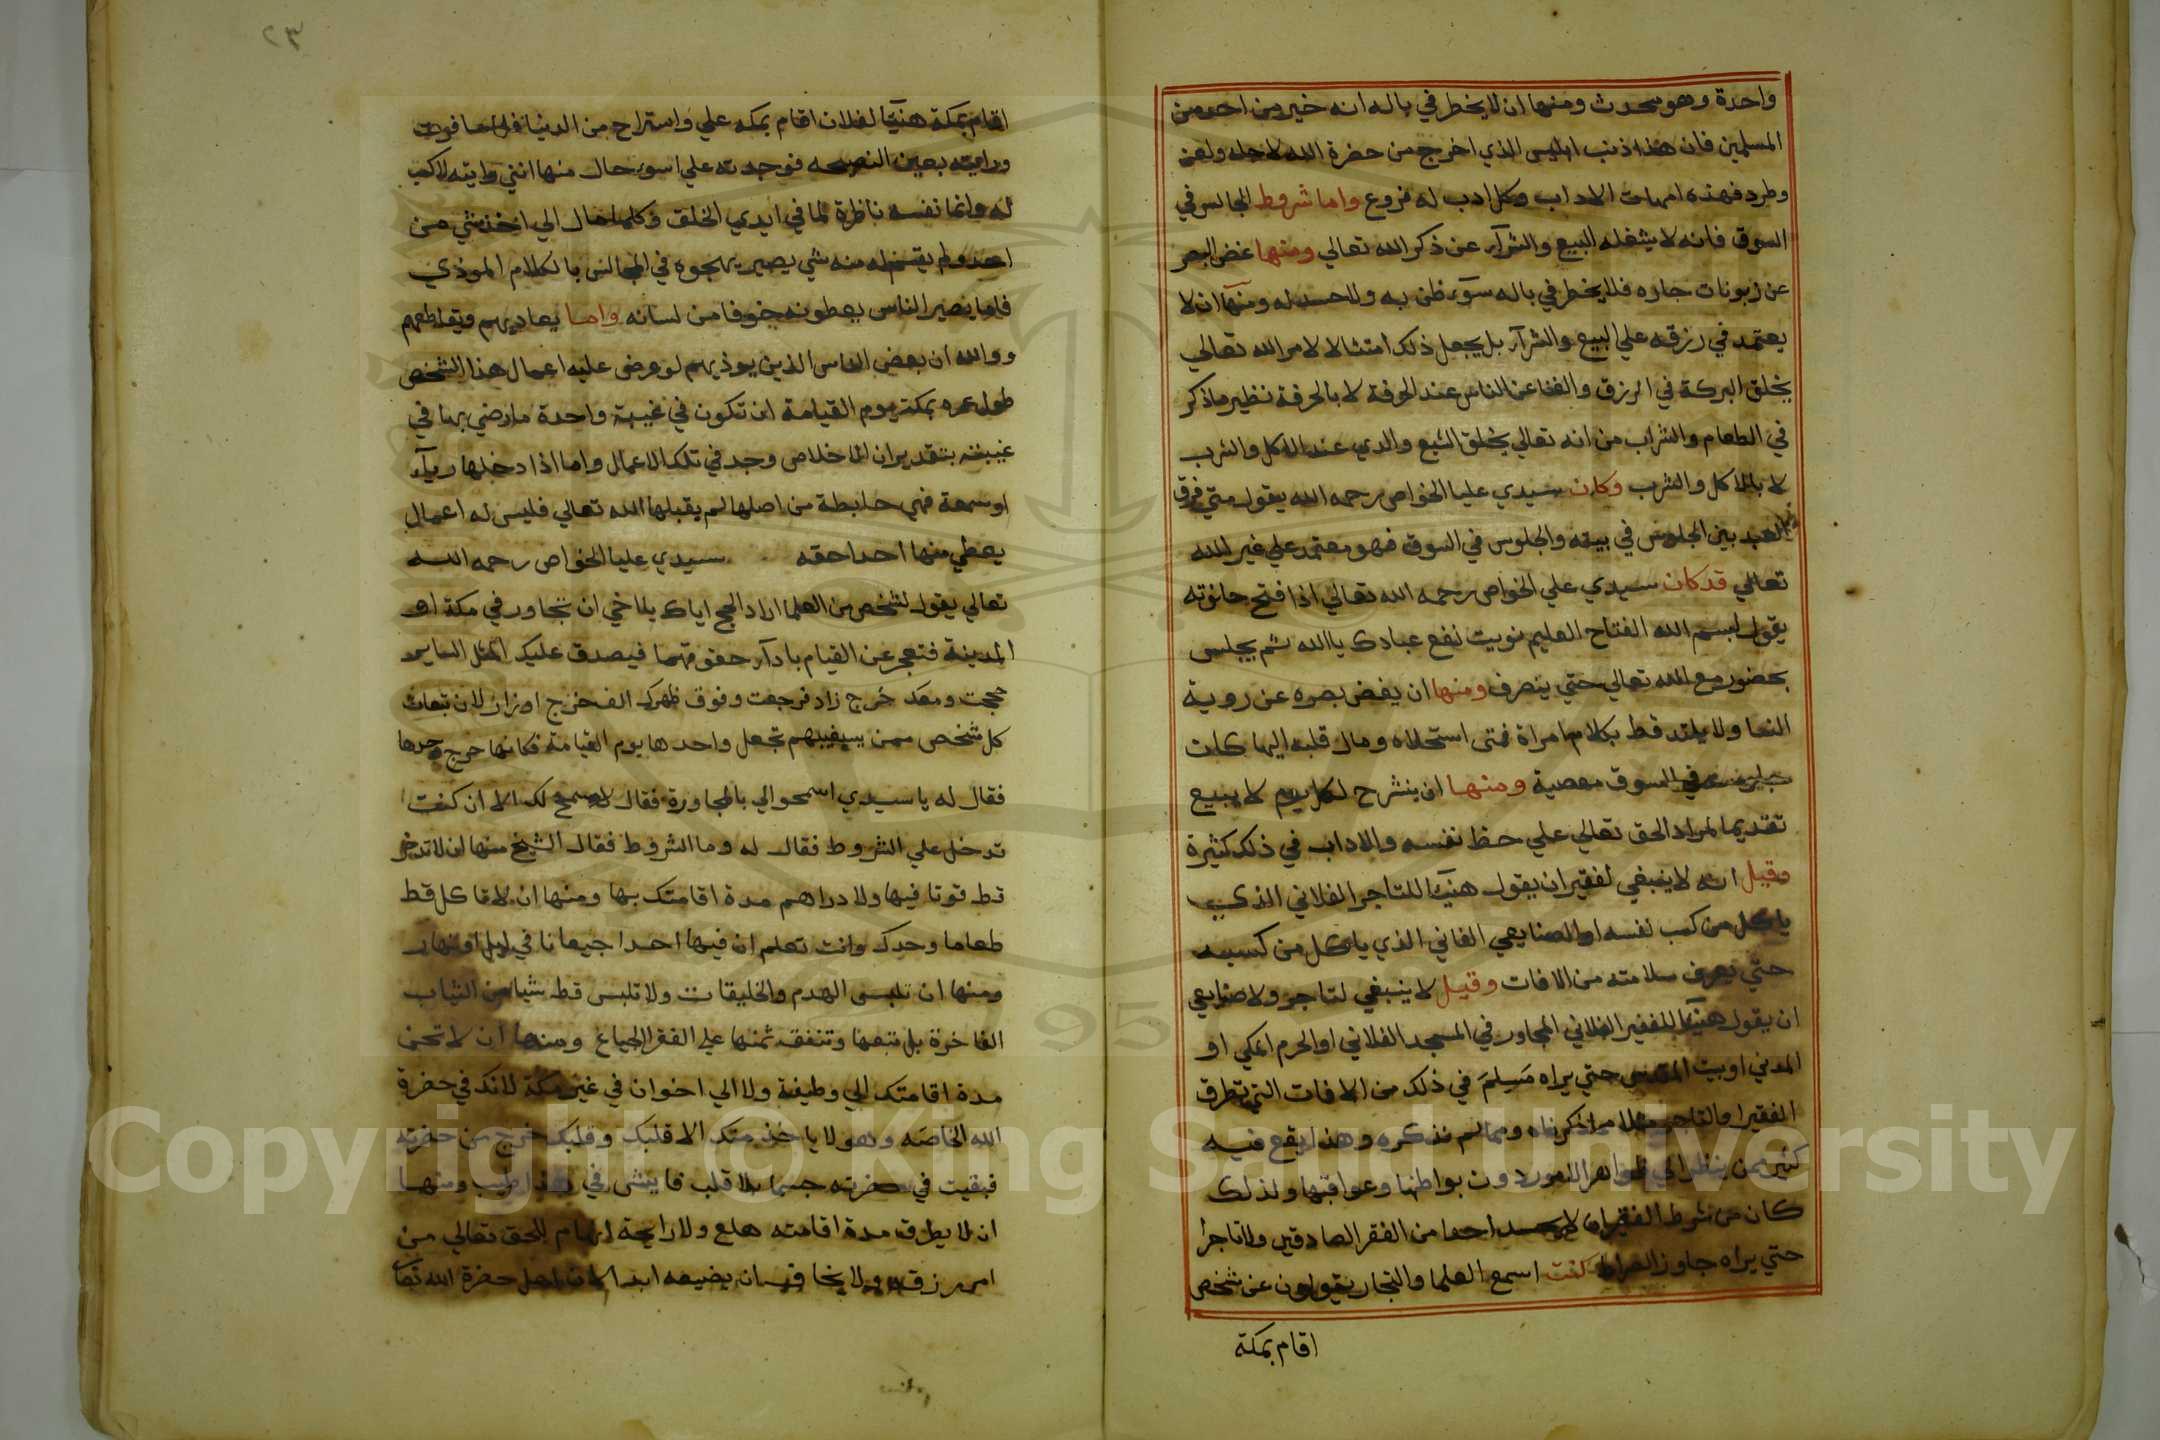 واحدة وهو محدث ومنها ان لا يخطر في باله انه خير من احد من
المسلمين فان هذا ذنب ابليس الذي اخرج من حضرة الله لاجله ولعن
وطرد فهذه امهات الاداب وكل ادب له فروع واما شروط الجالس في
السوق فانه لا يشغله البيع والشرآء عن ذكر الله تعالي ومنها غض البصر
عن زبونات جاره فلا يخطر في باله سوء ظن به ولا حسد له ومنها ان لا
يعتمد في رزقه علي البيع والشرآء بل يجعل ذلك امتثالا لامر الله تعالي
يخلق البركة في الرزق والغنا عن الناس عند الحرفة لا بالحرفة نظير ما ذكر
في الطعام والشراب من انه تعالي يخلق الشبع والري عند الاكل والشرب
لا بالاكل والشرب وكان سيدي عليا الخواص رحمه الله يقول متي فرق
العبد بين الجلوس في بيته والجلوس في السوق فهو معتمد علي غير الله
تعالي قد كان سيدي علي الخواص رحمه الله تعالي اذا فتح حانوته
يقول بسم الله الفتاح العليم نويت نفع عبادك يا الله ثم يجلس
بحضور مع الله تعالي حتي ينصرف ومنها ان يغض بصره عن روية
النسا ولا يلتد قط بكلام امراة فمتى استحلاه ومال قلبه اليها كان
في السوق معصية ومنها ان ينشرح لكل يوم لا يبيع
تقديما لمراد الحق تعالي علي حظ نفسه والاداب في ذلك كثيرة
وقيل انه لا ينبغي لفقير ان يقول هنيئا للتاجر الفلاني الذي
ياكل من كسب نفسه او الصنايعي الفاني الذي ياكل من كسبه
حتي يعرف سلامته من الافات وقيل لا ينبغي لتاجر ولا صنايعي
ان يقول هنيئا للفقير الفلاني المجاور في المسجد الفلاني او الحرم المكي او
المدني او بيت المقدس حتي يراه مسلم في ذلك من الافات التي تطرق
الفقير والتاجر مثلا مما ذكرناه ومما لم نذكره وهذا يقع فيه
كثير ممن ينظر الي ظواهر الامور دون بواطنها وعواقبها ولذلك
كان من شرط الفقير ان لا يحسد احدا من الفقرا الصادقين ولا تاجرا
حتي يراه جاوز الصراط كنت اسمع العلما والتجار يقولون عن شخص
اقام بمكة
٢٣
اقام بمكة هنيئا لفلان اقام بمكه علي واستراح من الدنيا
ورايته بعين النصحه فوجدته علي اسوء حال منها انني رايته لا كسب
له وانما نفسه ناظرة لما في ايدي الخلق وكلما مال الي اخذ شي من
احد ولم يقسم له منه شي يصير يهجوه في المجالس بالكلام الموذي
فاما يصير الناس يعطونه خوفا من لسانه واما يعاديهم ويقاطعهم
ووالله ان بعض الناس الذين يوذيهم لو عرض عليه اعمال هذا الشخص
طول عمره بمكة يوم القيامة ان تكون في غيبة واحدة ما رضي بها في
غيبته بتقدير ان الاخلاص وجد في تلك الاعمال واما اذا دخلها ريآء
او سمعة فهي حابطة من اصلها لم يقبلها الله تعالي فليس له اعمال
يعطي منها احدا حقه سيدي عليا الخواص رحمه الله
تعالي يقول لشخص من العلما اراد الحج اياك يا اخي ان تجاور في مكة او
المدينة فتعجز عن القيام بادآء حقوقهما فيصدق عليك المثل الساير
حججت ومعك خرج زاد فرجعت وفوق ظهرك الف خرج اوزار لان تبعات
كل شخص ممن يسيفيبهم تجعل واحدها يوم القيامة فكانها خرج وحدها
فقال له يا سيدي اسمحوالي بالمجاورة فقال لا اسمح لك الا ان كنت
تدخل علي الشروط فقال له وما الشروط فقال الشيخ منها ان لا تدخر
قط قوتا فيها ولا دراهم مدة اقامتك بها ومنها ان لا تاكل قط
طعاما وحدك وانت تعلم ان فيها احدا جيعانا في ليل او نهار
ومنها ان تلبس الهدم والخليقات ولا تلبس قط شيا من الثياب
الفاخرة بل تبعها وتنفقه ثمنها علي الفقرا الجياع ومنها ان لا تحن
مدة اقامتك الي وظيفة ولا الي اخوان في غير مكة لانك في حضرة
الله الخاصة وهو لا ياخذ منك الا قلبك وقلبك خرج من حضرته
فبقيت في حضرته جسما بلا قلب فايش في هذا طيب ومنها
ان لا يطرق مدة اقامته هلع ولا رايحة اتهام للحق تعالي من
امر رزقه ولا يخاف ان يضيعه ابدا لان اهل حضرة الله تعا
Copyright © King Saud University
1957